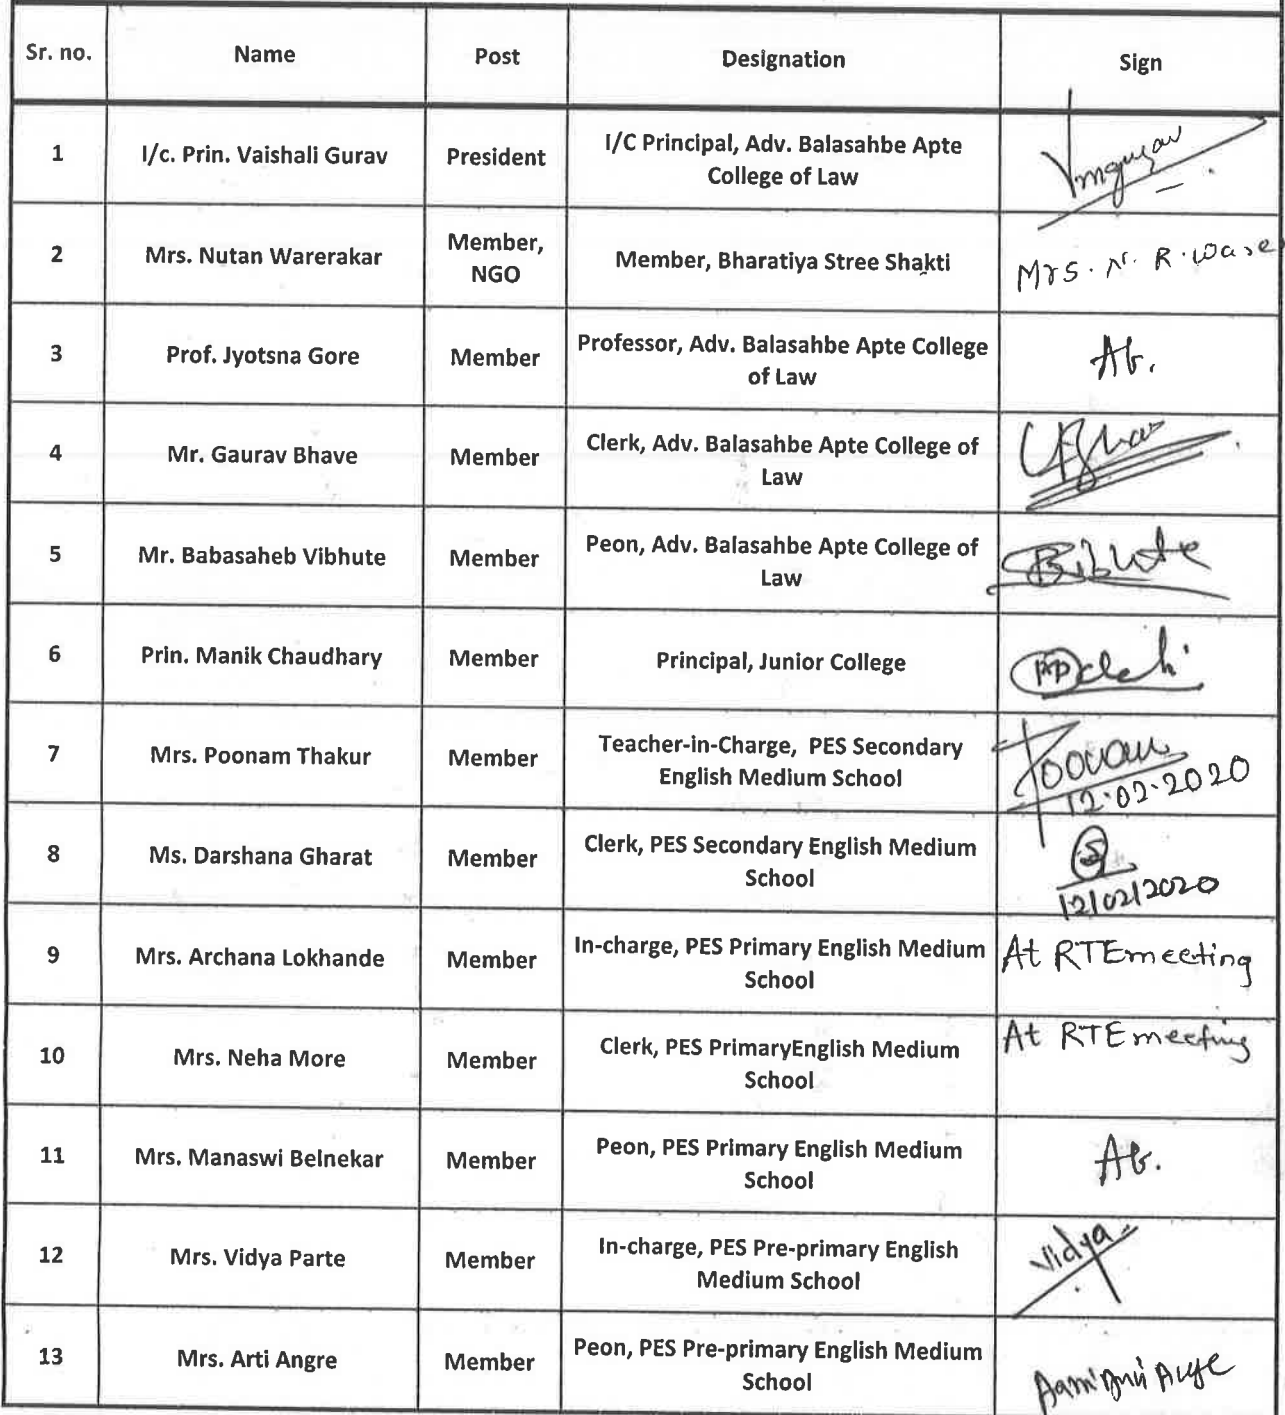 Sr. no. Name Post Designation Sign
1 I/c. Prin. Vaishali Gurav President I/C Principal, Adv. Balasahbe Apte
College of Law Vmgurav
2 Mrs. Nutan Warerakar Member,
NGO Member, Bharatiya Stree Shakti Mrs. N. R. Ware
3 Prof. Jyotsna Gore Member Professor, Adv. Balasahbe Apte College
of Law Ab.
4 Mr. Gaurav Bhave Member Clerk, Adv. Balasahbe Apte College of
Law
5 Mr. Babasaheb Vibhute Member Peon, Adv. Balasahbe Apte College of
Law Bibhute
6 Prin. Manik Chaudhary Member Principal, Junior College
7 Mrs. Poonam Thakur Member Teacher-in-Charge, PES Secondary
English Medium School Poonam
12.02.2020
8 Ms. Darshana Gharat Member Clerk, PES Secondary English Medium
School
12/02/2020
9 Mrs. Archana Lokhande Member In-charge, PES Primary English Medium
School At RTE meeting
10 Mrs. Neha More Member Clerk, PES PrimaryEnglish Medium
School At RTE meeting
11 Mrs. Manaswi Belnekar Member Peon, PES Primary English Medium
School Ab.
12 Mrs. Vidya Parte Member In-charge, PES Pre-primary English
Medium School Vidya
13 Mrs. Arti Angre Member Peon, PES Pre-primary English Medium
School